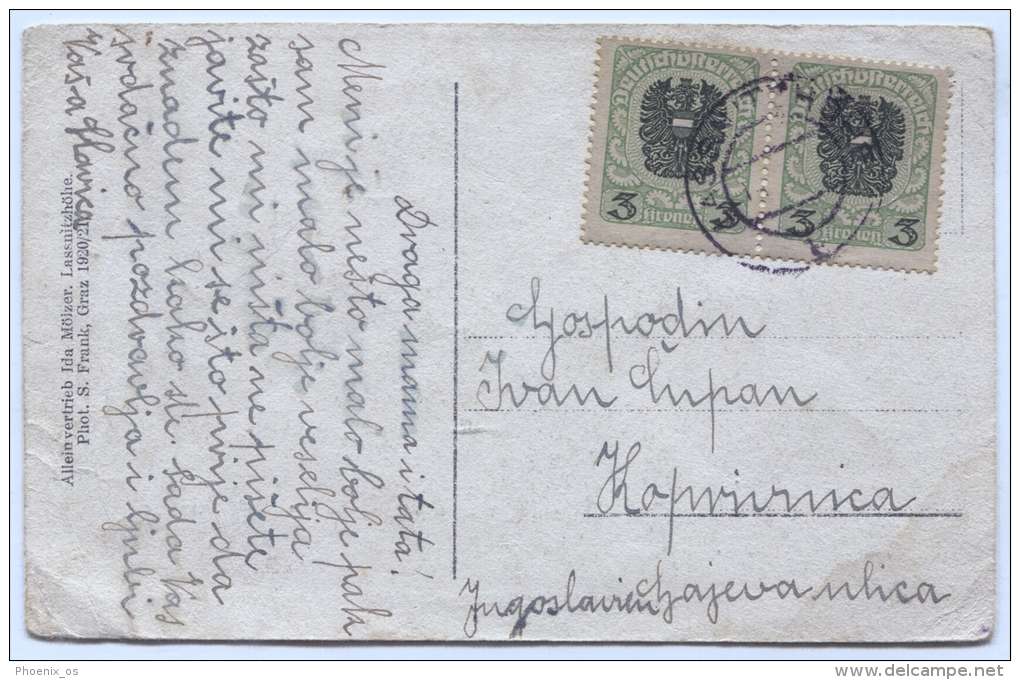 Draga mama i tata!
Meni je nešto malo bolje pak
sam malo bolje veselija
zašto mi ništa ne pišete
javite mi se što prvje da
znadem kako ste. Sada Vas
srdačno pozdravlja i ljubi
Vaša
Alleinvertrieb Ida Mölzer. Lassnitzhöhe.
Phot. S. Frank, Graz 1920/21
Deutschösterreich
3 3
Kronen
Deutschösterreich
3 3
Kronen
Gospodin
Ivan Čupan
Koprivnica
Jugoslavien
ulica
Phoenix_os
www.delcampe.net